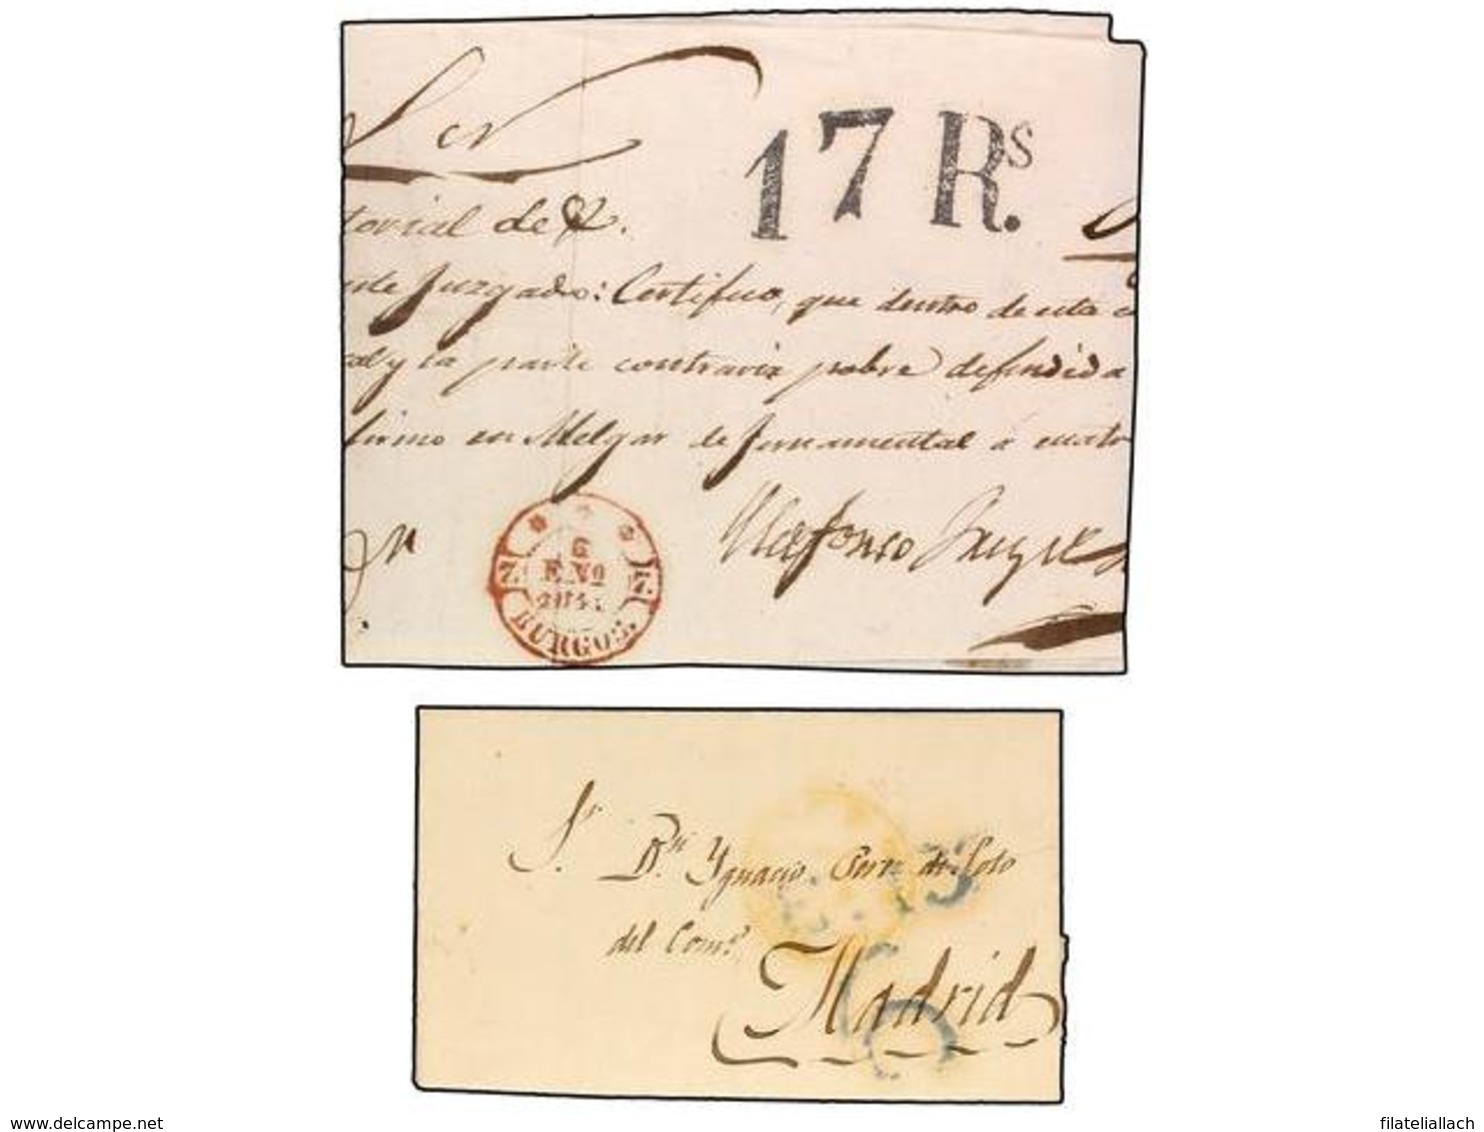 17 Rs.
torial de
Juzgado: Certifico, que dentro de esta
y la parte contraria pobre defendida
firmo en Melgar de Fernamental á cuatro
Ildefonso
6
ENO
BURGOS.
Sr. Dn. Ygnacio Perz. de Soto
del Como.
Madrid
www.delcampe.net
filateliallach